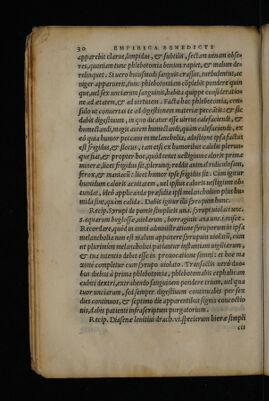 30 EMPIRICA BENEDICTI
apparebit clarus, limpidus, & subtilis, sectam venam obse-
res, quoniam tunc phlebotomia bonum rapit, & malum de-
relinquet. Si vero huiusmodi sanguis crassus, turbulentus, et
niger apparuerit, tunc phlebotomiam complebit pondere quin
que, vel sex unciarum sanguinis, habita quippe consideratio
ne ad ætatem, & ad virtutem. Facta hac phlebotomia, consi-
do ut convertas te ad digestionem materiæ peccatis: & sic
dabit digestivum, in quo dicatur esse virtus calefaciendi, &
humectandi, magis autem humectandi, quàm calefaciendi, ex
eo quia humor peccans in melancholia, adustione ipsa factus
est frigidus, & siccus, tam etsi ex humoribus calidis plerun-
que fiat, & propter hoc, quòd tenet vestigium caloris prima
minera, licet frigidus sit, plerunque reddit animal
ferox, & maniacum: licet humor ipse frigidus sit. Cum igitur
humidum caloris acuitatem, vel ipsum caloris vestigium ob-
tundat, ideò applicanda præsidia ipsi melancholiam plus hu-
mida sint, quàm calida. Dabit igitur illi syropum hunc.
Recip. Syrupi de pomis simplicis unc. i. syrupi violat. unc.
s. aquarum buglossæ, acidorum, borraginis ana unc. i. misce.
Recordare, quòd in omni administratione syruporum in ipsa
melancholia non est malum apponere syrupum violatum, cum
ut plurimum melancholias patiuntur instantiam vigiliarum,
& tua intentio debet esse in provocatione somni: et hoc ma
ximè completur cum syrupo violato. Transactis verò duo-
bus diebus à prima phlebotomia, phlebotomabis cephalicam
cubiti dextri, extrahendo sanguinem pondere trium, vel qua
tuor unciarum, sed semper digestivum continuabis per sex
dies continuos, & septimo die apparentibus signis concoctio
nis, dabis patienti infrascriptum purgatorium.
Recip. Diasenæ lenitivi drach. vi. specierum hieræ simpli
cis